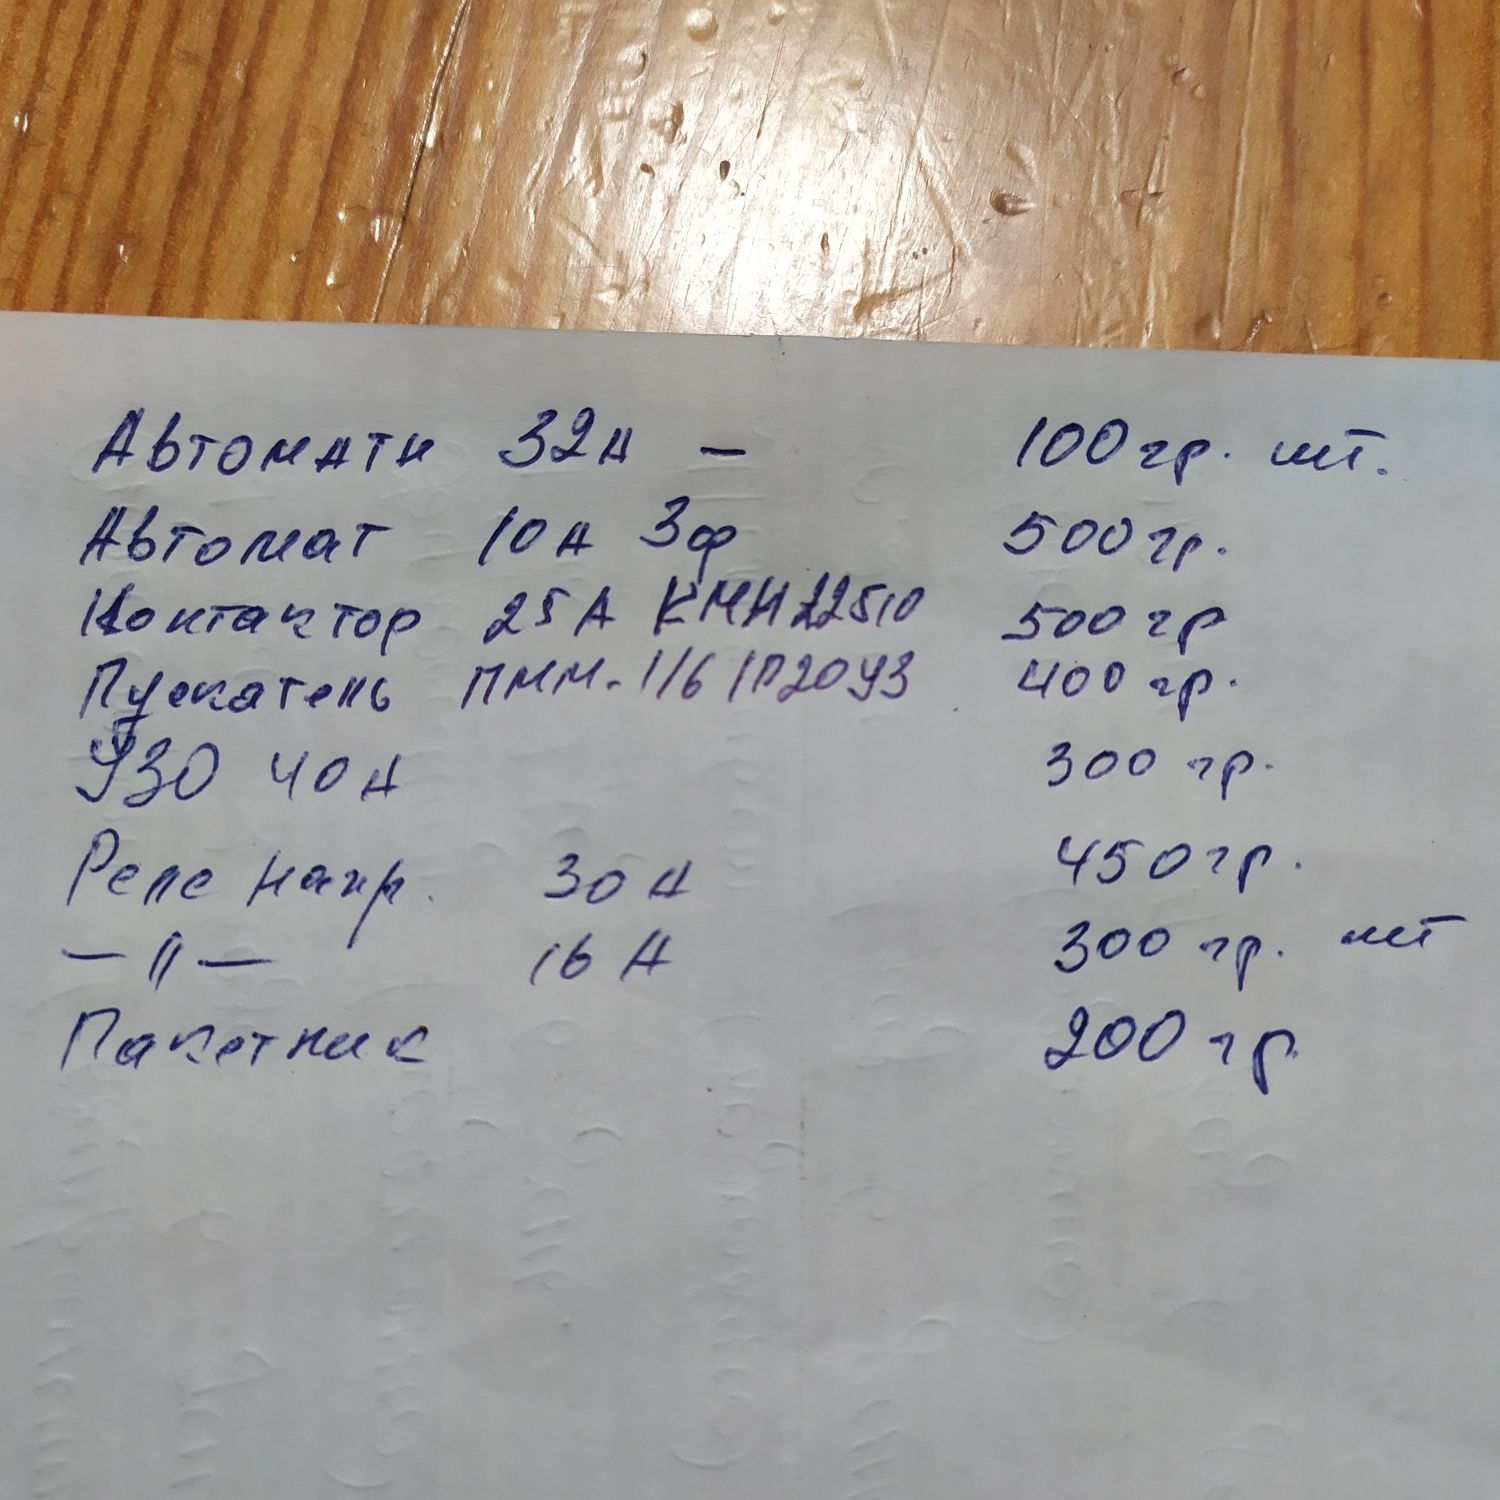 Автомати 32А – 100гр. шт.
Автомат 10А 3ф 500гр.
Контактор 25А КМН22510 500гр
Пускатель ПММ-1/6 1П20У3 400гр.
УЗО 40А 300гр.
Реле напр. 30А 450гр.
–〃– 16А 300гр. шт
Пакетник 200гр.